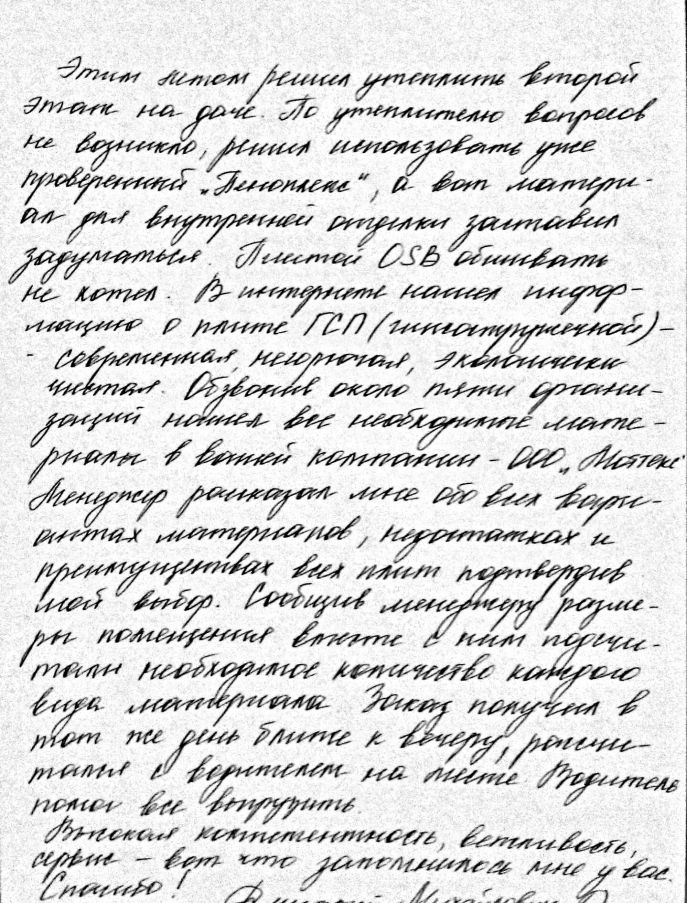 Этим летом решил утеплить второй
этаж на даче. По утеплителю вопросов
не возникло, решил использовать уже
проверенный „Пеноплекс“, а вот матери-
ал для внутренней отделки заставил
задуматься. Плитой OSB обшивать
не хотел. В интернете нашел инфор-
мацию о плите ГСП (гипсостружечной) -
- современная, негорючая, экологически
чистая. Обзвонив около пяти органи-
заций нашел все необходимые мате-
риалы в вашей компании - ООО
Менеджер рассказал мне обо всех вари-
антах материалов, недостатках и
преимуществах всех плит подтвердив
мой выбор. Сообщив менеджеру разме-
ры помещения вместе с ним подсчи-
тали необходимое количество каждого
вида материала. Заказ получил в
тот же день ближе к вечеру, рассчи-
тался с водителем на месте. Водитель
помог все выгрузить.
Высокая компетентность, вежливость,
сервис - вот что запомнилось мне у вас.
Спасибо!